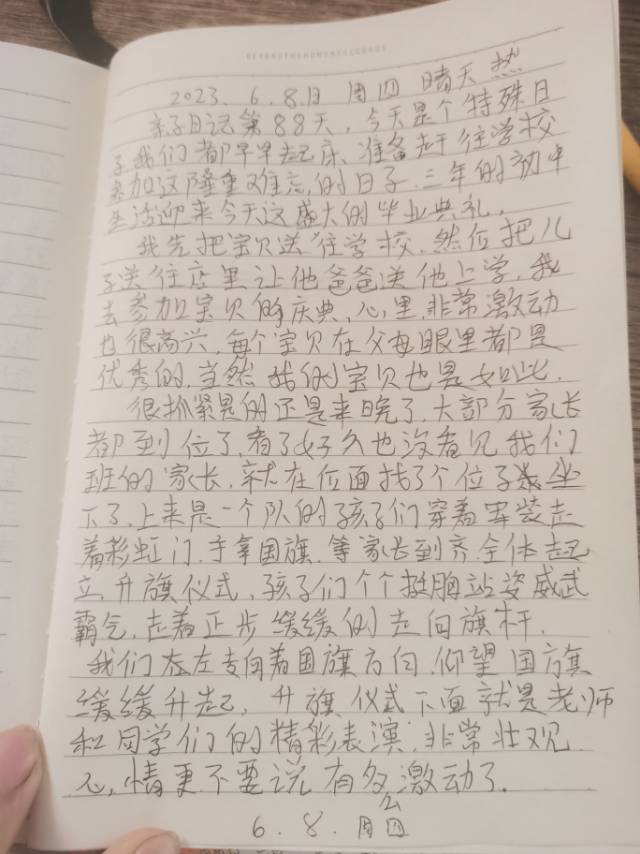 BEYONDTHEMOMENTRECORDS
2023. 6. 8.日 周四 晴天 热
亲子日记第88天, 今天是个特殊日
子我们都早早起床、准备赶往学校
参加这隆重难忘的日子.三年的初中
生活迎来今天这盛大的毕业典礼.
我先把宝贝送往学校.然后把儿
子送往店里让他爸爸送他上学.我
去参加宝贝的庆典.心里.非常激动
也很高兴.每个宝贝在父母眼里都是
优秀的.当然我的宝贝也是如此.
很抓紧是的还是来晚了.大部分家长
都到位了.看了好久也没看见我们
班的家长.就在后面找了个位子坐
下了.上来是一个队的孩子们穿着军装走
着彩虹门.手拿国旗.等家长到齐.全体起
立.升旗仪式.孩子们个个挺胸站姿威武
霸气.走着正步缓缓的走向旗杆.
我们在左专向着国旗方向.仰望国旗
缓缓升起. 升旗仪式下面就是老师
和同学们的精彩表演.非常壮观
心情更不要说有多么激动了.
6. 8. 周四